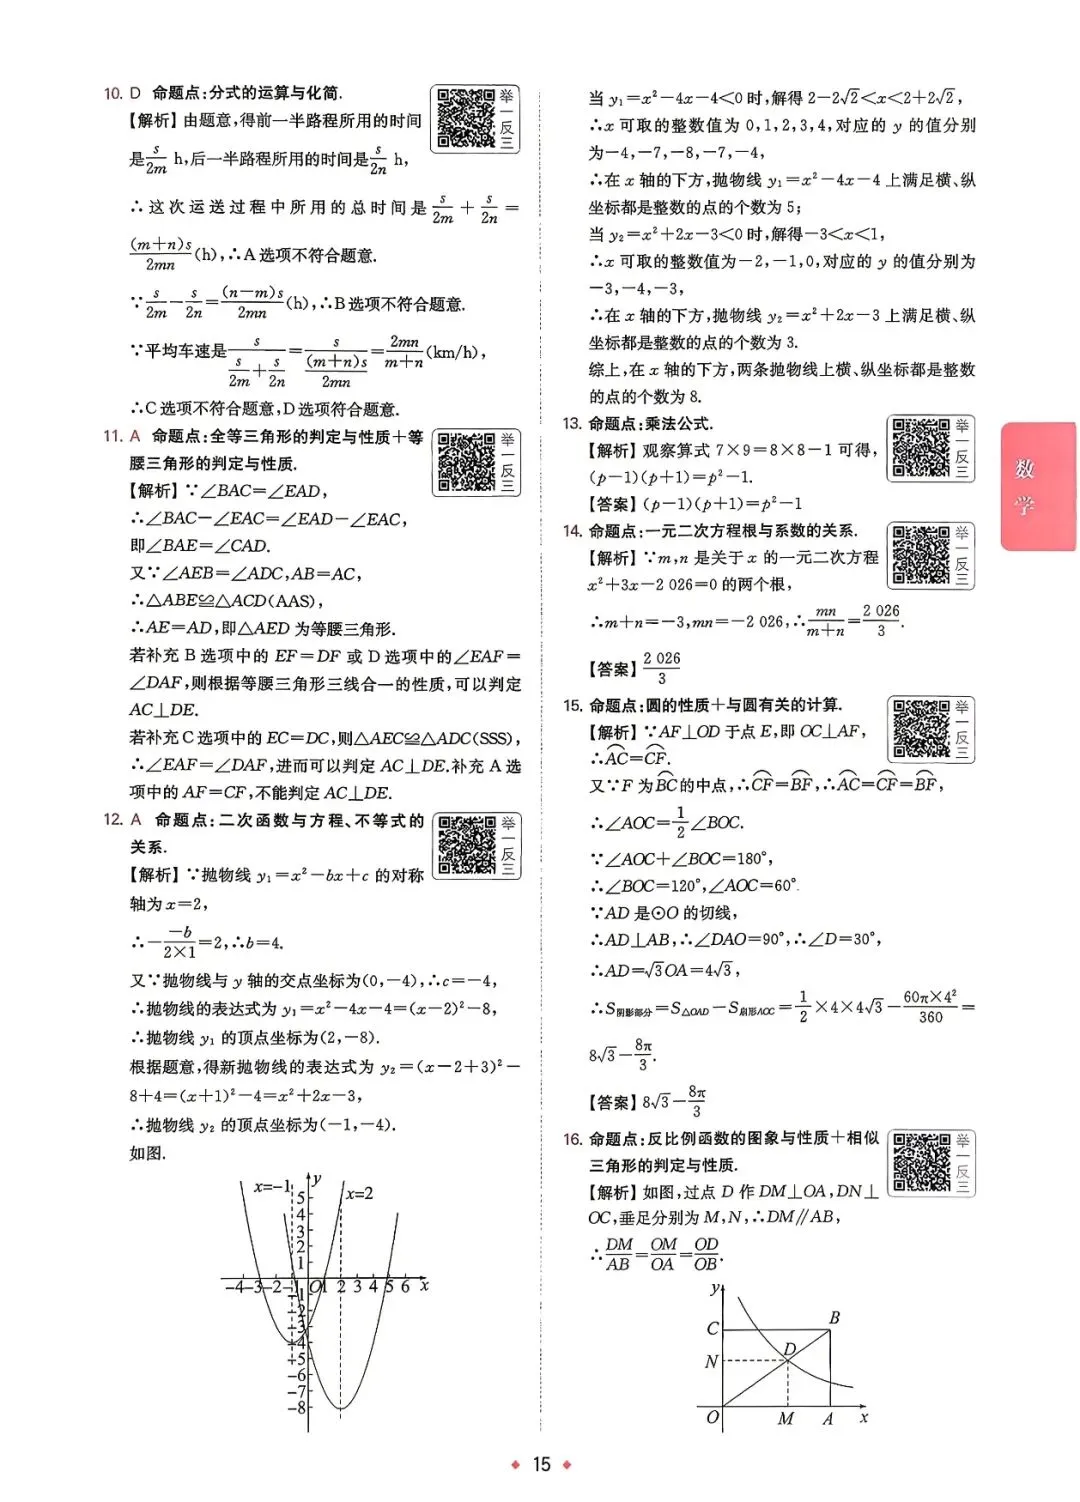 10. D 命题点:分式的运算与化简.
举一反三
【解析】由题意,得前一半路程所用的时间
是s/2m h,后一半路程所用的时间是s/2n h,
∴这次运送过程中所用的总时间是 s/2m + s/2n =
(m+n)s/2mn (h),∴A选项不符合题意.
∵s/2m−s/2n=(n−m)s/2mn (h),∴B选项不符合题意.
∵平均车速是 s/(s/2m+s/2n)=s/((m+n)s/2mn)=2mn/(m+n) (km/h),
∴C选项不符合题意,D选项符合题意.
11. A 命题点:全等三角形的判定与性质+等
腰三角形的判定与性质.
举一反三
【解析】∵∠BAC=∠EAD,
∴∠BAC−∠EAC=∠EAD−∠EAC,
即∠BAE=∠CAD.
又∵∠AEB=∠ADC,AB=AC,
∴△ABE≌△ACD(AAS),
∴AE=AD,即△AED为等腰三角形.
若补充B选项中的EF=DF或D选项中的∠EAF=
∠DAF,则根据等腰三角形三线合一的性质,可以判定
AC⊥DE.
若补充C选项中的EC=DC,则△AEC≌△ADC(SSS),
∴∠EAF=∠DAF,进而可以判定AC⊥DE.补充A选
项中的AF=CF,不能判定AC⊥DE.
12. A 命题点:二次函数与方程、不等式的
关系.
举一反三
【解析】∵抛物线 y₁=x²−bx+c 的对称
轴为x=2,
∴−(−b)/(2×1)=2,∴b=4.
又∵抛物线与y轴的交点坐标为(0,−4),∴c=−4,
∴抛物线的表达式为 y₁=x²−4x−4=(x−2)²−8,
∴抛物线 y₁ 的顶点坐标为(2,−8).
根据题意,得新抛物线的表达式为 y₂=(x−2+3)²−
8+4=(x+1)²−4=x²+2x−3,
∴抛物线 y₂ 的顶点坐标为(−1,−4).
如图.
x=−1 y x=2
5
4
3
2
1
−4−3−2−1 O 1 2 3 4 5 6 x
−1
−2
−3
−4
−5
−6
−7
−8
当 y₁=x²−4x−4<0时,解得2−2√2<x<2+2√2,
∴x可取的整数值为0,1,2,3,4,对应的y的值分别
为−4,−7,−8,−7,−4,
∴在x轴的下方,抛物线 y₁=x²−4x−4上满足横、纵
坐标都是整数的点的个数为5;
当 y₂=x²+2x−3<0时,解得−3<x<1,
∴x可取的整数值为−2,−1,0,对应的y的值分别为
−3,−4,−3,
∴在x轴的下方,抛物线 y₂=x²+2x−3上满足横、纵
坐标都是整数的点的个数为3.
综上,在x轴的下方,两条抛物线上横、纵坐标都是整数
的点的个数为8.
13. 命题点:乘法公式.
举一反三
【解析】观察算式7×9=8×8−1可得,
(p−1)(p+1)=p²−1.
【答案】(p−1)(p+1)=p²−1
14. 命题点:一元二次方程根与系数的关系.
举一反三
【解析】∵m,n是关于x的一元二次方程
x²+3x−2 026=0的两个根,
∴m+n=−3,mn=−2 026,∴mn/(m+n)=2 026/3.
【答案】2 026/3
15. 命题点:圆的性质+与圆有关的计算.
举一反三
【解析】∵AF⊥OD于点E,即OC⊥AF,
∴⌒AC=⌒CF.
又∵F为⌒BC的中点,∴⌒CF=⌒BF,∴⌒AC=⌒CF=⌒BF,
∴∠AOC=1/2∠BOC.
∵∠AOC+∠BOC=180°,
∴∠BOC=120°,∠AOC=60°.
∵AD是⊙O的切线,
∴AD⊥AB,∴∠DAO=90°,∴∠D=30°,
∴AD=√3OA=4√3,
∴S阴影部分=S△OAD−S扇形AOC=1/2×4×4√3−60π×4²/360=
8√3−8π/3.
【答案】8√3−8π/3
16. 命题点:反比例函数的图象与性质+相似
三角形的判定与性质.
举一反三
【解析】如图,过点D作DM⊥OA,DN⊥
OC,垂足分别为M,N,∴DM∥AB,
∴DM/AB=OM/OA=OD/OB.
y
C B
N D
O M A x
数学
15